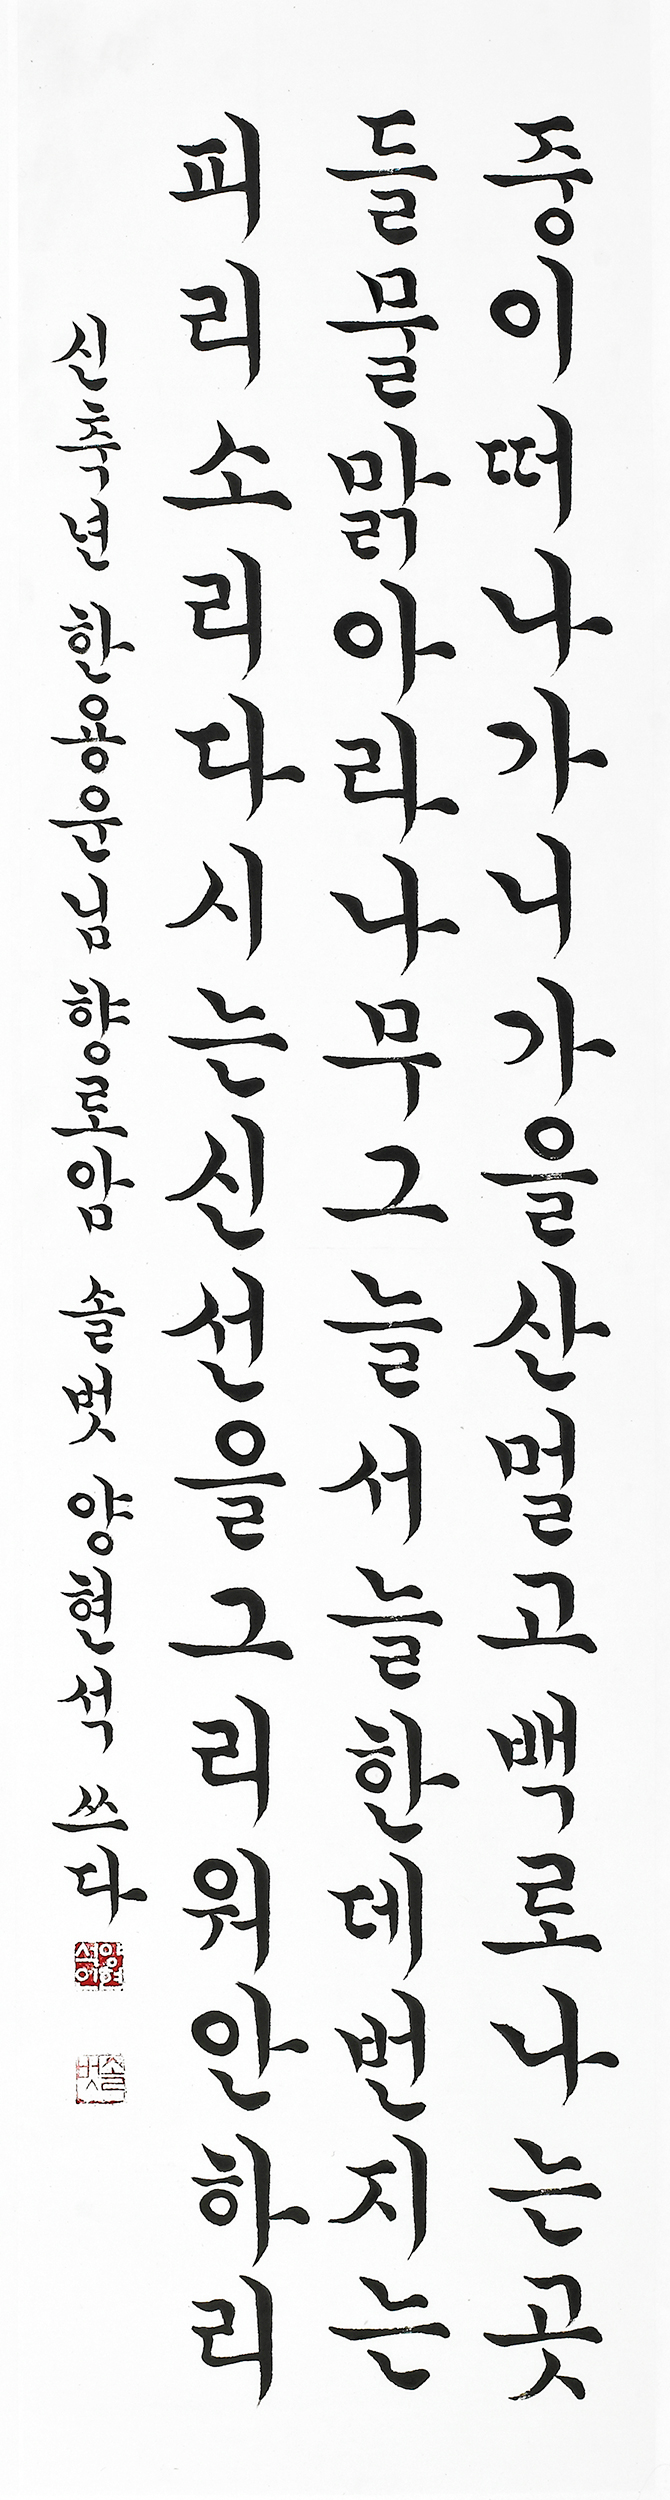 중이떠나가니가을산멀고백로나는곳
들물맑아라나무그늘서늘한데번지는
피리소리다시는신선을그리워안하리
신축년 한용운님 향로암 솔벗 양현석 쓰다
양현석
솔벗